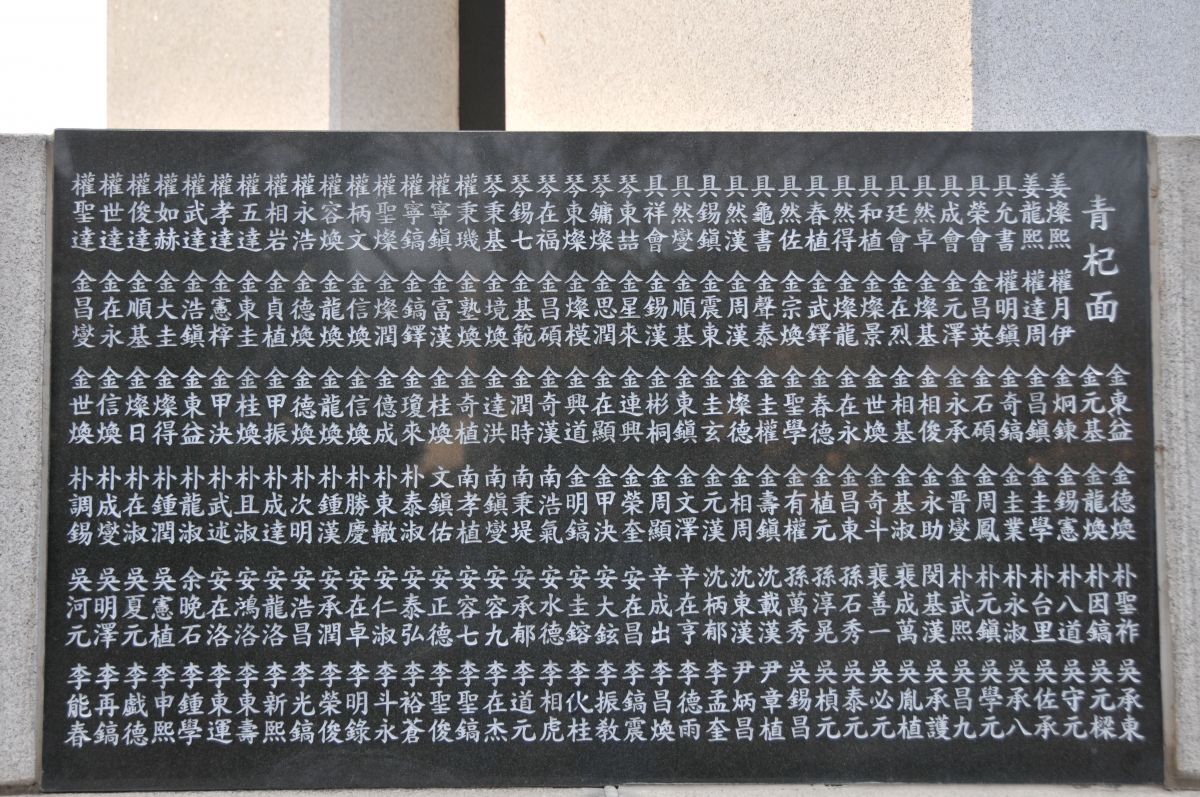 青杞面
姜燦熙 姜龍熙 具允書 具榮會 具成會 具然卓 具廷會 具和植 具然得 具春植 具然佐 具龜書 具然漢 具錫鎭 具然燮 具祥會 琴東喆 琴鏞燦 琴東燦 琴在福 琴錫七 琴秉基 權秉璣 權寧鎭 權寧鎬 權聖燦 權柄文 權容煥 權永浩 權相岩 權五達 權孝達 權武達 權如赫 權俊達 權世達 權聖達
權月伊 權達周 權明鎭 金昌英 金元澤 金燦基 金在烈 金燦景 金燦龍 金武鐸 金宗煥 金聲泰 金周漢 金震東 金順基 金錫漢 金星來 金思潤 金燦模 金昌碩 金基範 金境煥 金塾煥 金富漢 金鎬鐸 金燦潤 金信煥 金龍煥 金德煥 金貞植 金東圭 金憲榟 金浩鎭 金大圭 金順基 金在永 金昌燮
金東益 金元基 金炯鍊 金昌鎭 金奇鎬 金石碩 金永承 金相俊 金相基 金世煥 金在永 金春德 金聖學 金圭權 金燦德 金圭玄 金東鎭 金彬桐 金連興 金在顯 金興道 金奇漢 金潤時 金達洪 金奇植 金桂煥 金瓊來 金億成 金信煥 金龍煥 金德煥 金甲煥 金桂振 金甲決 金東益 金燦得 金燦日 金信煥 金世煥
金德煥 金龍煥 金錫憲 金圭學 金圭業 金周鳳 金晋燮 金永助 金基淑 金奇斗 金昌東 金植元 金有權 金壽鎭 金相周 金元漢 金文澤 金周顯 金榮奎 金甲決 金明鎬 南浩氣 南秉堤 南鎭燮 南孝植 文鎭佑 朴泰淑 朴東轍 朴勝慶 朴鍾漢 朴次明 朴成達 朴且淑 朴武述 朴龍淑 朴鍾潤 朴在淑 朴成燮 朴調錫
朴聖祚 朴因鎬 朴八道 朴台里 朴永淑 朴元鎭 朴武熙 閔基漢 裵成萬 裵善一 孫石秀 孫淳晃 孫萬秀 沈載漢 沈東漢 沈柄郁 辛在亨 辛成出 安在昌 安大鉉 安圭鎔 安水德 安承郁 安容九 安容七 安正德 安泰弘 安仁淑 安在卓 安承潤 安浩昌 安龍洛 安鴻洛 安在洛 余晩石 吳憲植 吳夏元 吳明澤 吳河元
吳承東 吳元樑 吳守元 吳佐承 吳承八 吳學元 吳昌九 吳承護 吳胤植 吳必元 吳泰元 吳楨元 吳錫昌 尹章植 尹炳昌 李孟奎 李德雨 李昌煥 李鎬震 李振教 李化桂 李相虎 李道元 李在杰 李聖鎬 李聖俊 李裕蒼 李斗永 李明錄 李榮俊 李光鎬 李新熙 李東壽 李東運 李鍾學 李申熙 李戲德 李再鎬 李能春